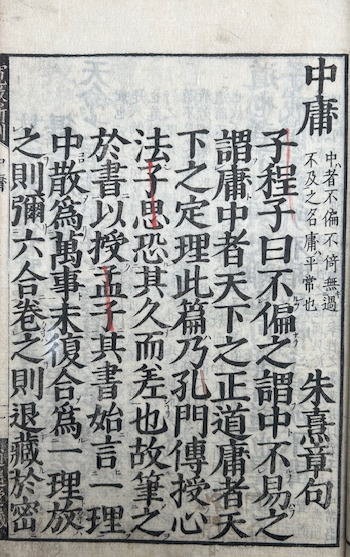 中庸
中者不偏不倚無過
不及之名庸平常也
朱熹章句
子程子曰不偏之謂中不易之
謂庸中者天下之正道庸者天
下之定理此篇乃孔門傳授心
法子思恐其久而差也故筆之
於書以授孟子其書始言一理
中散爲萬事末復合爲一理放
之則彌六合卷之則退藏於密